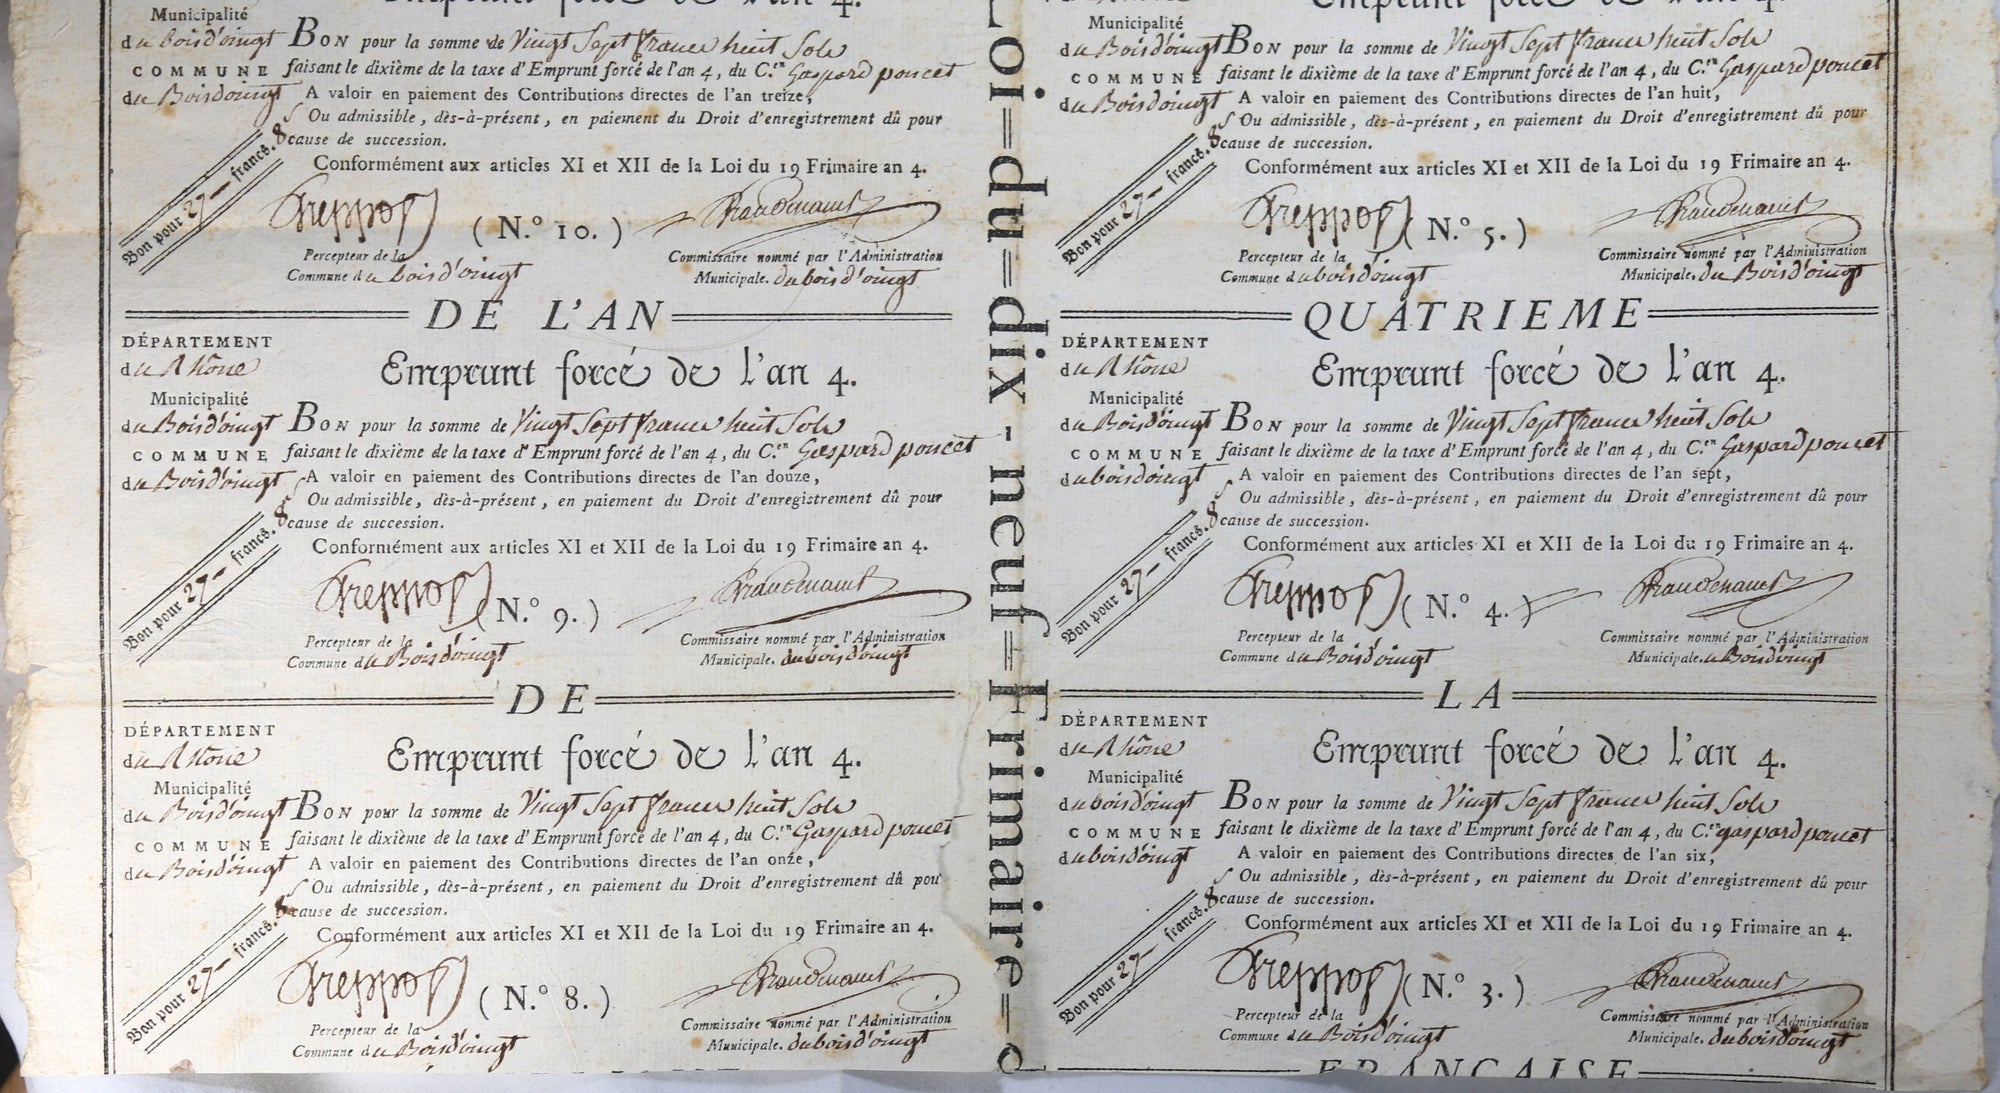 Emprunt forcé de l'an 4.
Municipalité
du bois d'oingt BON pour la somme de Vingt Sept francs huit Sols
COMMUNE faisant le dixième de la taxe d'Emprunt forcé de l'an 4, du C.en Gaspard poncet
du Bois d'oingt A valoir en paiement des Contributions directes de l'an treize,
Ou admissible, dès-à-présent, en paiement du Droit d'enregistrement dû pour
cause de succession.
Bon pour 27 francs. 8 s
Conformément aux articles XI et XII de la Loi du 19 Frimaire an 4.
Treppoz (N.° 10.)
Percepteur de la
Commune du bois d'oingt
Commissaire nommé par l'Administration
Municipale. du bois d'oingt
DE L'AN
DÉPARTEMENT
du Rhône
Emprunt forcé de l'an 4.
Municipalité
du Bois d'oingt BON pour la somme de Vingt Sept francs huit Sols
COMMUNE faisant le dixième de la taxe d'Emprunt forcé de l'an 4, du C.en Gaspard poncet
du Bois d'oingt A valoir en paiement des Contributions directes de l'an douze,
Ou admissible, dès-à-présent, en paiement du Droit d'enregistrement dû pour
cause de succession.
Bon pour 27 francs. 8 s
Conformément aux articles XI et XII de la Loi du 19 Frimaire an 4.
Treppoz (N.° 9.)
Percepteur de la
Commune du Bois d'oingt
Commissaire nommé par l'Administration
Municipale. du bois d'oingt
DE
DÉPARTEMENT
du Rhône
Emprunt forcé de l'an 4.
Municipalité
du Bois d'oingt BON pour la somme de Vingt Sept francs huit Sols
COMMUNE faisant le dixième de la taxe d'Emprunt forcé de l'an 4, du C.en Gaspard poncet
du Bois d'oingt A valoir en paiement des Contributions directes de l'an onze,
Ou admissible, dès-à-présent, en paiement du Droit d'enregistrement dû pour
cause de succession.
Bon pour 27 francs. 8 s
Conformément aux articles XI et XII de la Loi du 19 Frimaire an 4.
Treppoz (N.° 8.)
Percepteur de la
Commune du Bois d'oingt
Commissaire nommé par l'Administration
Municipale. du bois d'oingt
Loi=du=dix-neuf=Frimaire=
Emprunt forcé de l'an 4.
Municipalité
du Bois d'oingt BON pour la somme de Vingt Sept francs huit Sols
COMMUNE faisant le dixième de la taxe d'Emprunt forcé de l'an 4, du C.en Gaspard poncet
du Bois d'oingt A valoir en paiement des Contributions directes de l'an huit,
Ou admissible, dès-à-présent, en paiement du Droit d'enregistrement dû pour
cause de succession.
Bon pour 27 francs. 8 s
Conformément aux articles XI et XII de la Loi du 19 Frimaire an 4.
Treppoz (N.° 5.)
Percepteur de la
Commune du bois d'oingt
Commissaire nommé par l'Administration
Municipale. du Bois d'oingt
QUATRIEME
DÉPARTEMENT
du Rhône
Emprunt forcé de l'an 4.
Municipalité
du Bois d'oingt BON pour la somme de Vingt Sept francs huit Sols
COMMUNE faisant le dixième de la taxe d'Emprunt forcé de l'an 4, du C.en Gaspard poncet
du bois d'oingt A valoir en paiement des Contributions directes de l'an sept,
Ou admissible, dès-à-présent, en paiement du Droit d'enregistrement dû pour
cause de succession.
Bon pour 27 francs. 8 s
Conformément aux articles XI et XII de la Loi du 19 Frimaire an 4.
Treppoz (N.° 4.)
Percepteur de la
Commune du Bois d'oingt
Commissaire nommé par l'Administration
Municipale. du Bois d'oingt
LA
DÉPARTEMENT
du Rhône
Emprunt forcé de l'an 4.
Municipalité
du bois d'oingt BON pour la somme de Vingt Sept francs huit Sols
COMMUNE faisant le dixième de la taxe d'Emprunt forcé de l'an 4, du C.en gaspard poncet
du bois d'oingt A valoir en paiement des Contributions directes de l'an six,
Ou admissible, dès-à-présent, en paiement du Droit d'enregistrement dû pour
cause de succession.
Bon pour 27 francs. 8 s
Conformément aux articles XI et XII de la Loi du 19 Frimaire an 4.
Treppoz (N.° 3.)
Percepteur de la
Commune du Bois d'oingt
Commissaire nommé par l'Administration
Municipale. du bois d'oingt
FRANÇAISE